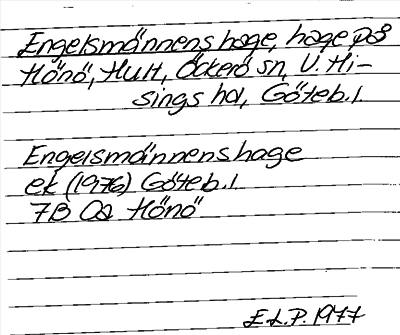 Engelsmännens hage, hage på
Hönö, Hult, Öckerö sn, V. Hi-
sings hd, Göteb. l.
Engelsmännens hage
ek (1976) Göteb. l
7B 0a Hönö
E.L.P. 1977